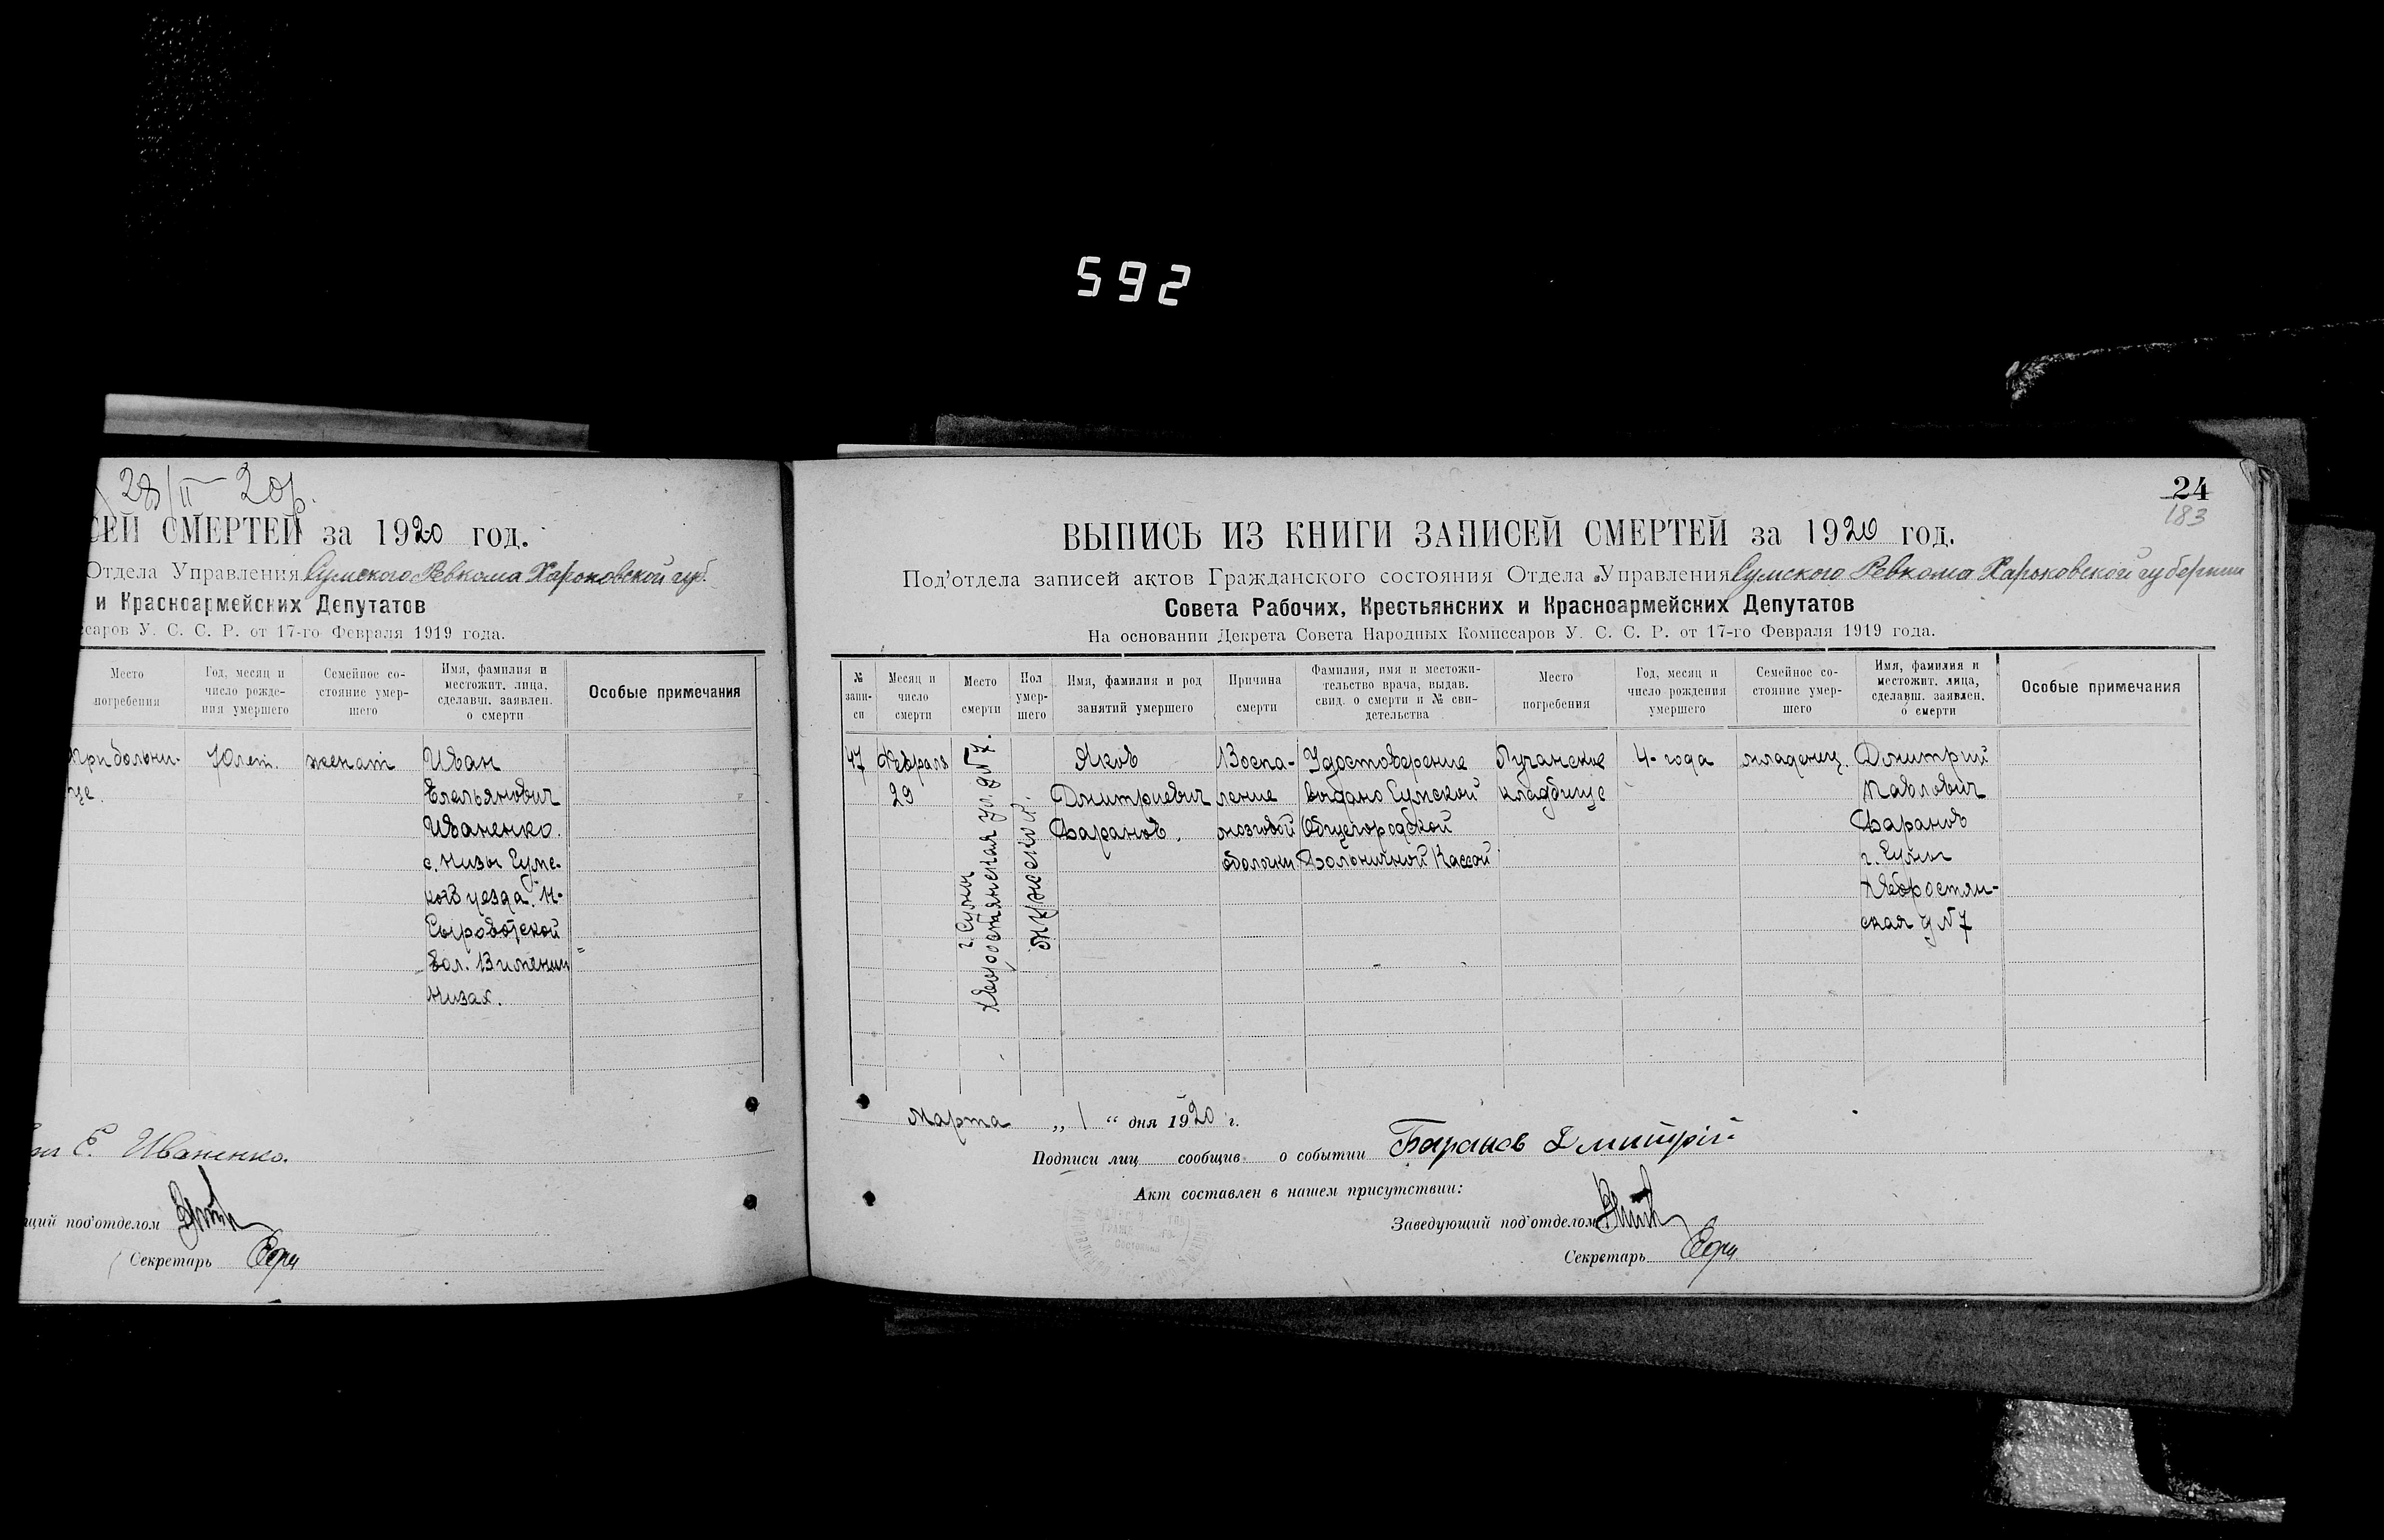 592
28/II – 20 г.
СЕЙ СМЕРТЕЙ за 1920 год.
Отдела Управления Сумского Ревкома Харьковской губ.
и Красноармейских Депутатов
ссаров У. С. С. Р. от 17-го Февраля 1919 года.
Место погребения
Год, месяц и число рожде- ния умершего
Семейное со- стояние умер- шего
Имя, фамилия и местожит. лица, сделавш. заявлен. о смерти
Особые примечания
При больни-
це.
70 лет.
женат
Иван
Емельянович
Иваненко.
с. Низы Сумс-
кого уезда. Н-
Сыроватской
вол. В имении
Низах.
Е. Иваненко.
щий под'отделом
Секретарь
24
183
ВЫПИСЬ ИЗ КНИГИ ЗАПИСЕЙ СМЕРТЕЙ за 1920 год.
Под'отдела записей актов Гражданского состояния Отдела Управления Сумского Ревкома Харьковской губернии
Совета Рабочих, Крестьянских и Красноармейских Депутатов
На основании Декрета Совета Народных Комиссаров У. С. С. Р. от 17-го Февраля 1919 года.
№ запи- си
Месяц и число смерти
Место смерти
Пол умер- шего
Имя, фамилия и род занятий умершего
Причина смерти
Фамилия, имя и местожи- тельство врача, выдав. свид. о смерти и № сви- детельства
Место погребения
Год, месяц и число рождения умершего
Семейное со- стояние умер- шего
Имя, фамилия и местожит. лица, сделавш. заявлен. о смерти
Особые примечания
47
Февраль
29
г. Сумы
ул. д № 7.
мужской.
Яков
Дмитриевич
Баранов.
Воспа-
ление
мозговой
оболочки
Удостоверение
выдано Сумской
Общегородской
Больничной Кассой
Лучанское
кладбище
4- года
младенец.
Дмитрий
Павлович
Баранов
г. Сумы
ская д № 7
Марта „ 1 “ дня 1920 г.
Подписи лиц сообщив о событии Баранов Дмитрій
Акт составлен в нашем присутствии:
Заведующий под'отделом
Секретарь